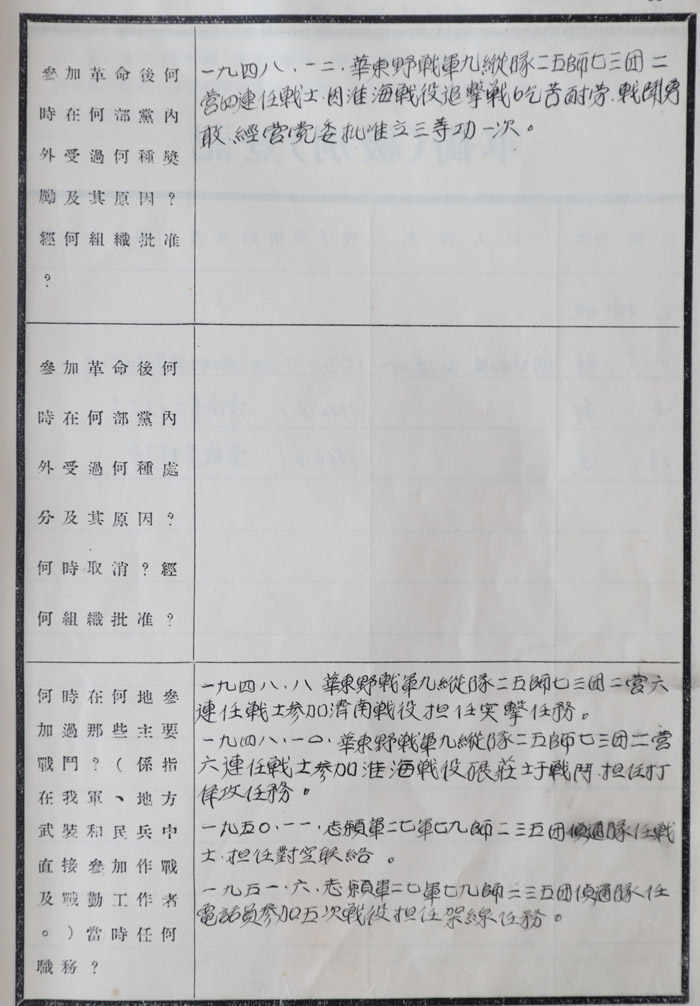 參加革命後何
時在何部黨內
外受過何種奬
勵及其原因？
經何組織批准
？
一九四八．一二．華東野戰軍九縱隊二五師七三团二
营四連任戰士．因淮海戰役追擊戰吃苦耐劳．戰鬥勇
敢．經营党委批准立三等功一次。
參加革命後何
時在何部黨內
外受過何種處
分及其原因？
何時取消？經
何組織批准？
何時在何地參
加過那些主要
戰鬥？（係指
在我軍、地方
武裝和民兵中
直接參加作戰
及戰勤工作者
。）當時任何
職務？
一九四八．八 華東野戰軍九縱隊二五師七三团二营六
連任戰士參加濟南戰役担任突擊任務。
一九四八．一〇．華東野戰軍九縱隊二五師七三团二营
六連任戰士參加淮海戰役張莊士于戰鬥．担任打
佯攻任務。
一九五〇．一一．志願軍二七軍七九師二三五团偵通隊任戰
士．担任對空联给。
一九五一．六．志願軍二七軍七九師二三五团偵通隊任
電話員參加五次戰役担任架線任務。